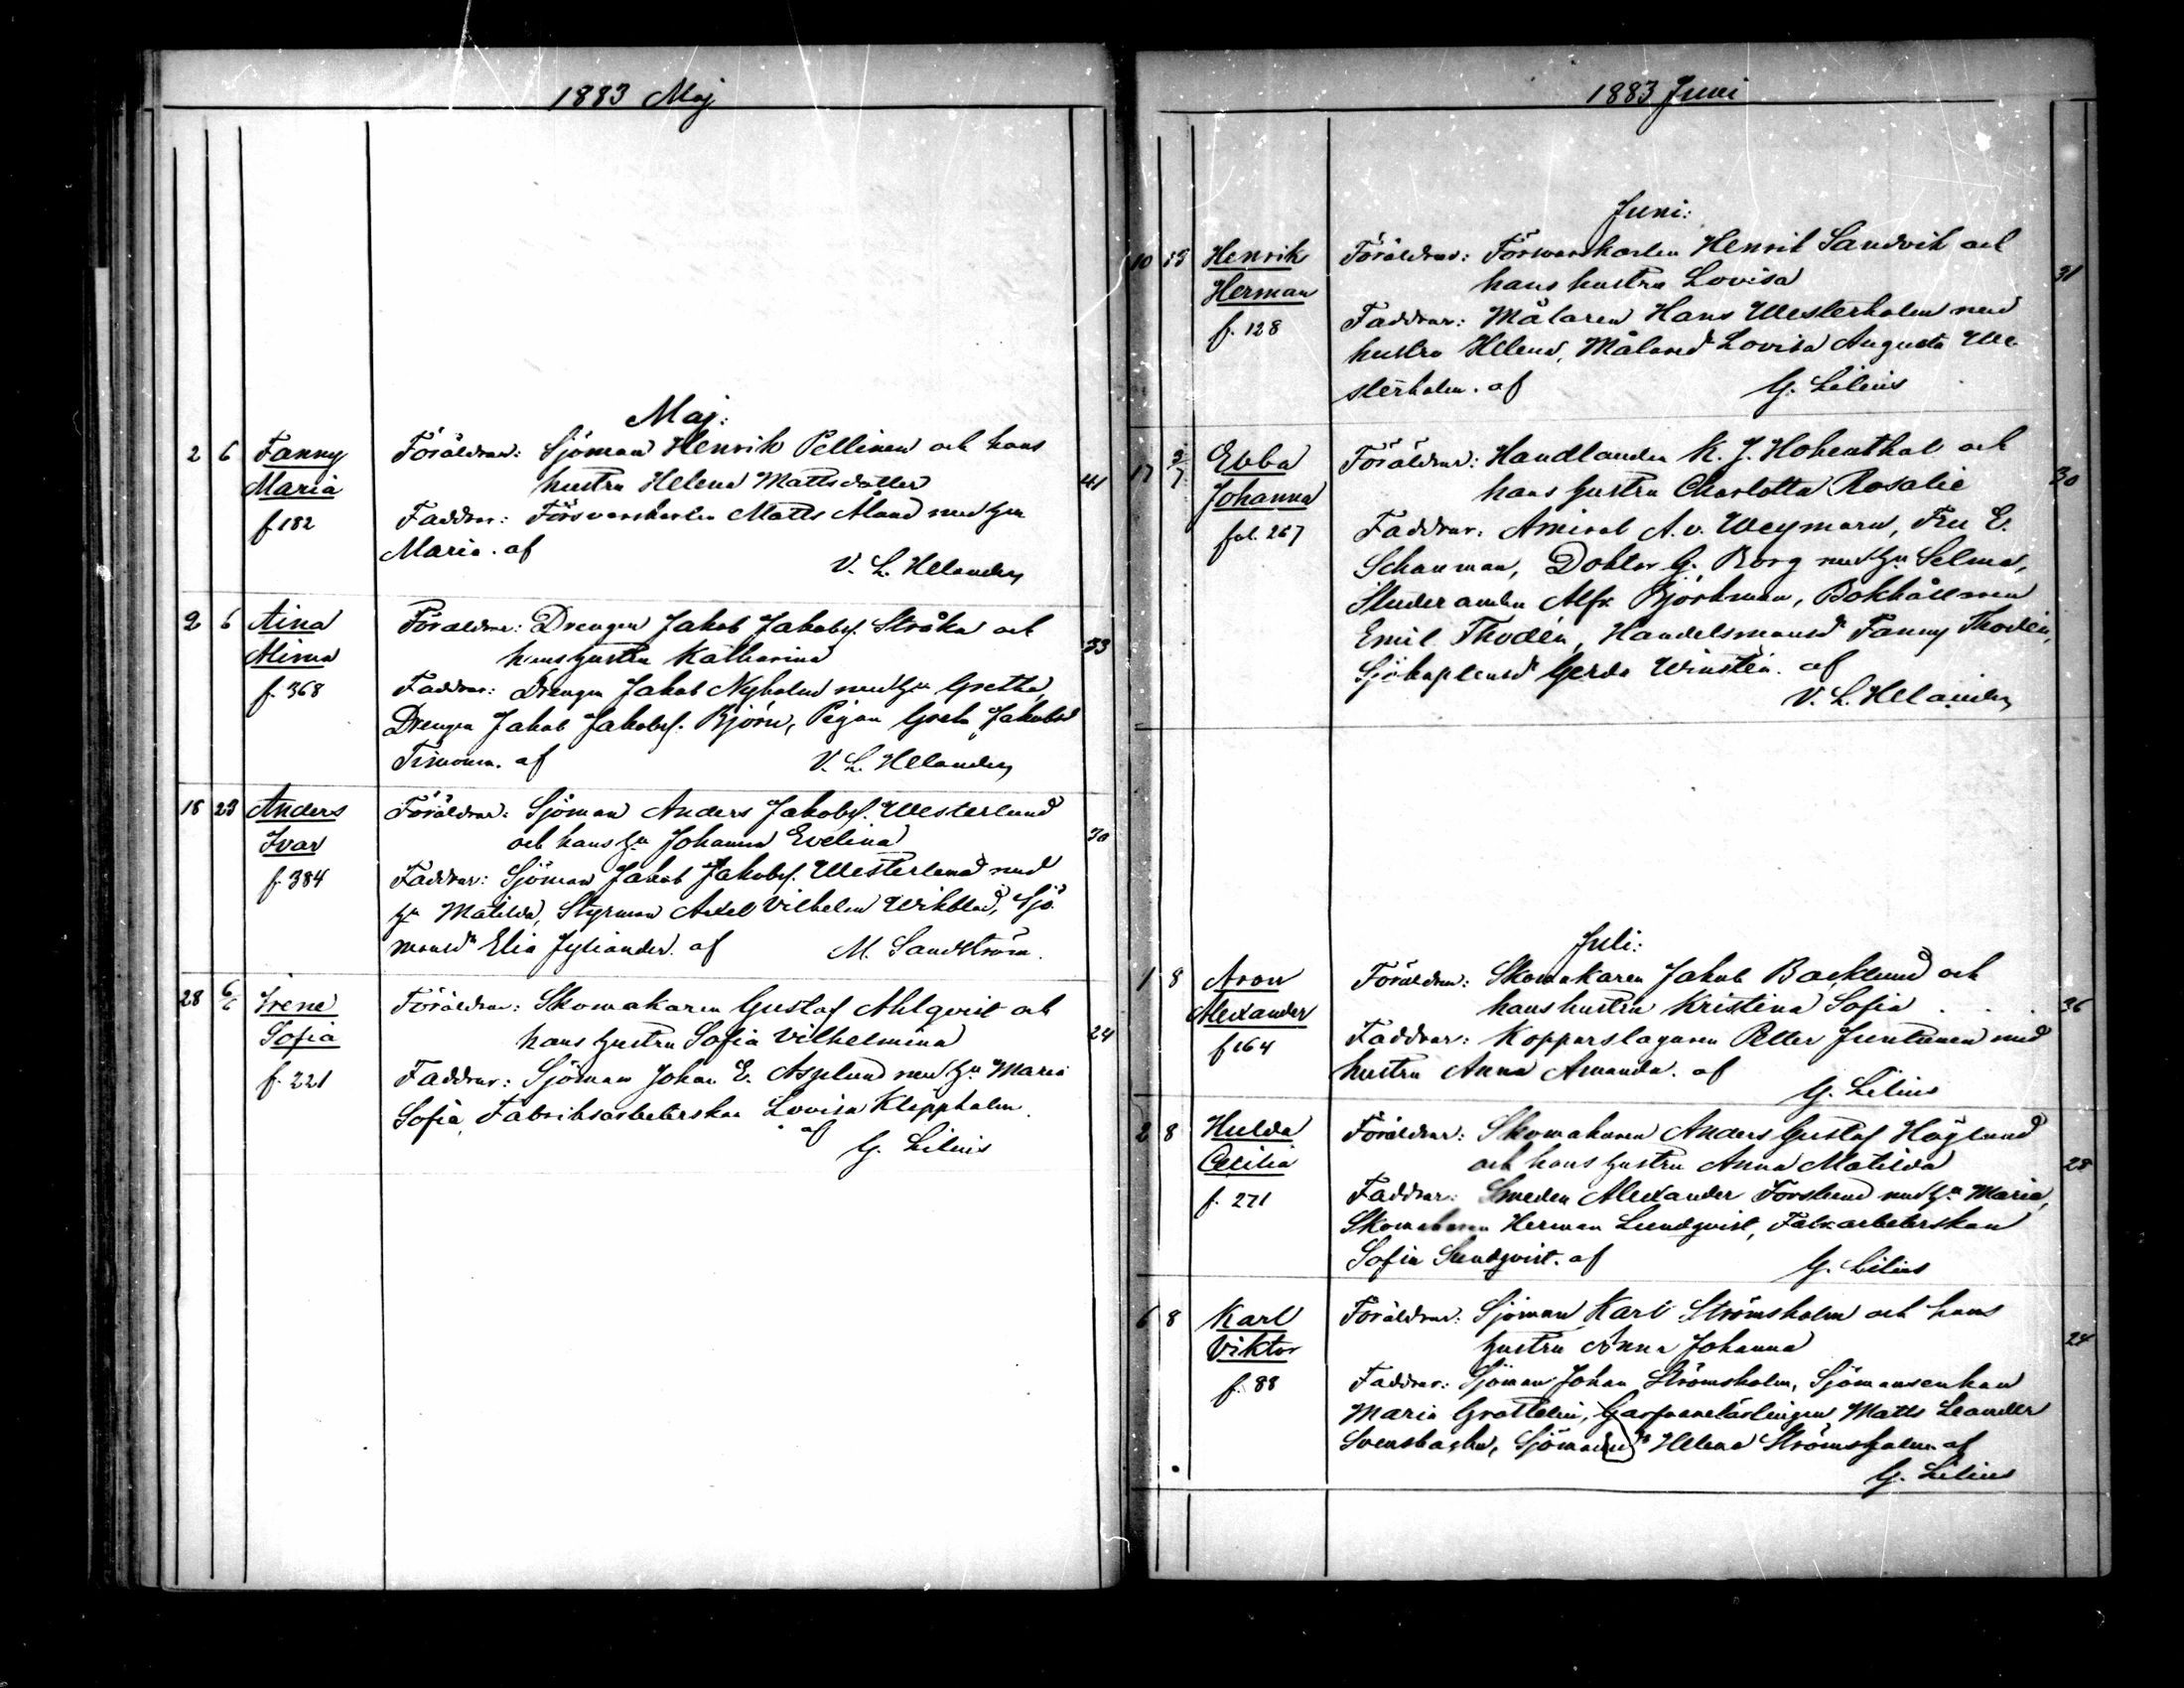 1883 Maj
Maj:
2 6 Fanny Föräldrar: Sjöman Henrik Pellinen och hans
Maria hustru Helena Mattsdotter 41
f 182 Faddrar: Försvarskarlen Matts Åland med hu
Maria. af
V. L. Helander
2 6 Aina Föräldrar: Drengen Jakob Jakobss. Stråka och
Alina hans hustru Katharina 33
f. 368 Faddrar: Drengen Jakob Nyholm med hu Gretha,
Drengen Jakob Jakobss. Björn, Pigan Greta Jakobsd
Timonen. af V. L. Helander
18 23 Anders Föräldrar: Sjöman Anders Jakobss. Westerlund
Ivar och hans hu Johanna Evelina 30
f. 384 Faddrar: Sjöman Jakob Jakobss. Westerlund med
hu Matilda, Styrman Axel Vilhelm Wikblad, Sjö
mansd Elia af M. Sandström.
28 6/6 Irene Föräldrar: Skomakaren Gustaf Ahlqvist och
Sofia hans hustru Sofia Vilhelmina 24
f. 221 Faddrar: Sjöman Johan E. Asplund med hu Maria
Sofia, Fabriksarbeterskan Lovisa Klippholm.
af
G. Lilius
1883 Juni
Juni:
10 13 Henrik Föräldrar: Försvarskarlen Henrik Sandvik och
Herman hans hustru Lovisa 31
f. 128 Faddrar: Målaren Hans Westerholm med
hustru Helena, Målared Lovisa Augusta We
sterholm. af G. Lilius
17 2/7 Ebba Föräldrar: Handlanden K. J. Hohenthal och
Johanna hans hustru Charlotta Rosalie 30
fol. 267 Faddrar: Amiral A. v. Weymarn, Fru E.
Schauman, Doktor G. Borg med hu Selma,
Studeranden Alfr Björkman, Bokhållaren
Emil Thodén, Handelsmansd Fanny Thodén,
Sjökaptensd Gerda Winstén. af
V. L. Helander
Juli:
1 8 Aron Föräldrar: Skomakaren Jakob Backlund och
Alexander hans hustru Kristina Sofia 36
f 164 Faddrar: Kopparslagaren Petter Juntunen med
hustru Anna Amanda. af
G. Lilius
2 8 Hulda Föräldrar: Skomakaren Anders Gustaf Höglund
Cecilia och hans hustru Anna Matilda 28
f. 271 Faddrar: Smeden Alexander Forslund med hu Maria,
Skomakaren Herman Lundqvist, Fabr.arbeterskan
Sofia Sundqvist. af
G. Lilius
6 8 Karl Föräldrar: Sjöman Karl Strömsholm och hans
Viktor hustru Anna Johanna 24
f. 88 Faddrar: Sjöman Johan Strömsholm, Sjömansenkan
Maria Matts Leander
Svensbacka, Helena Strömsholm af
G. Lilius